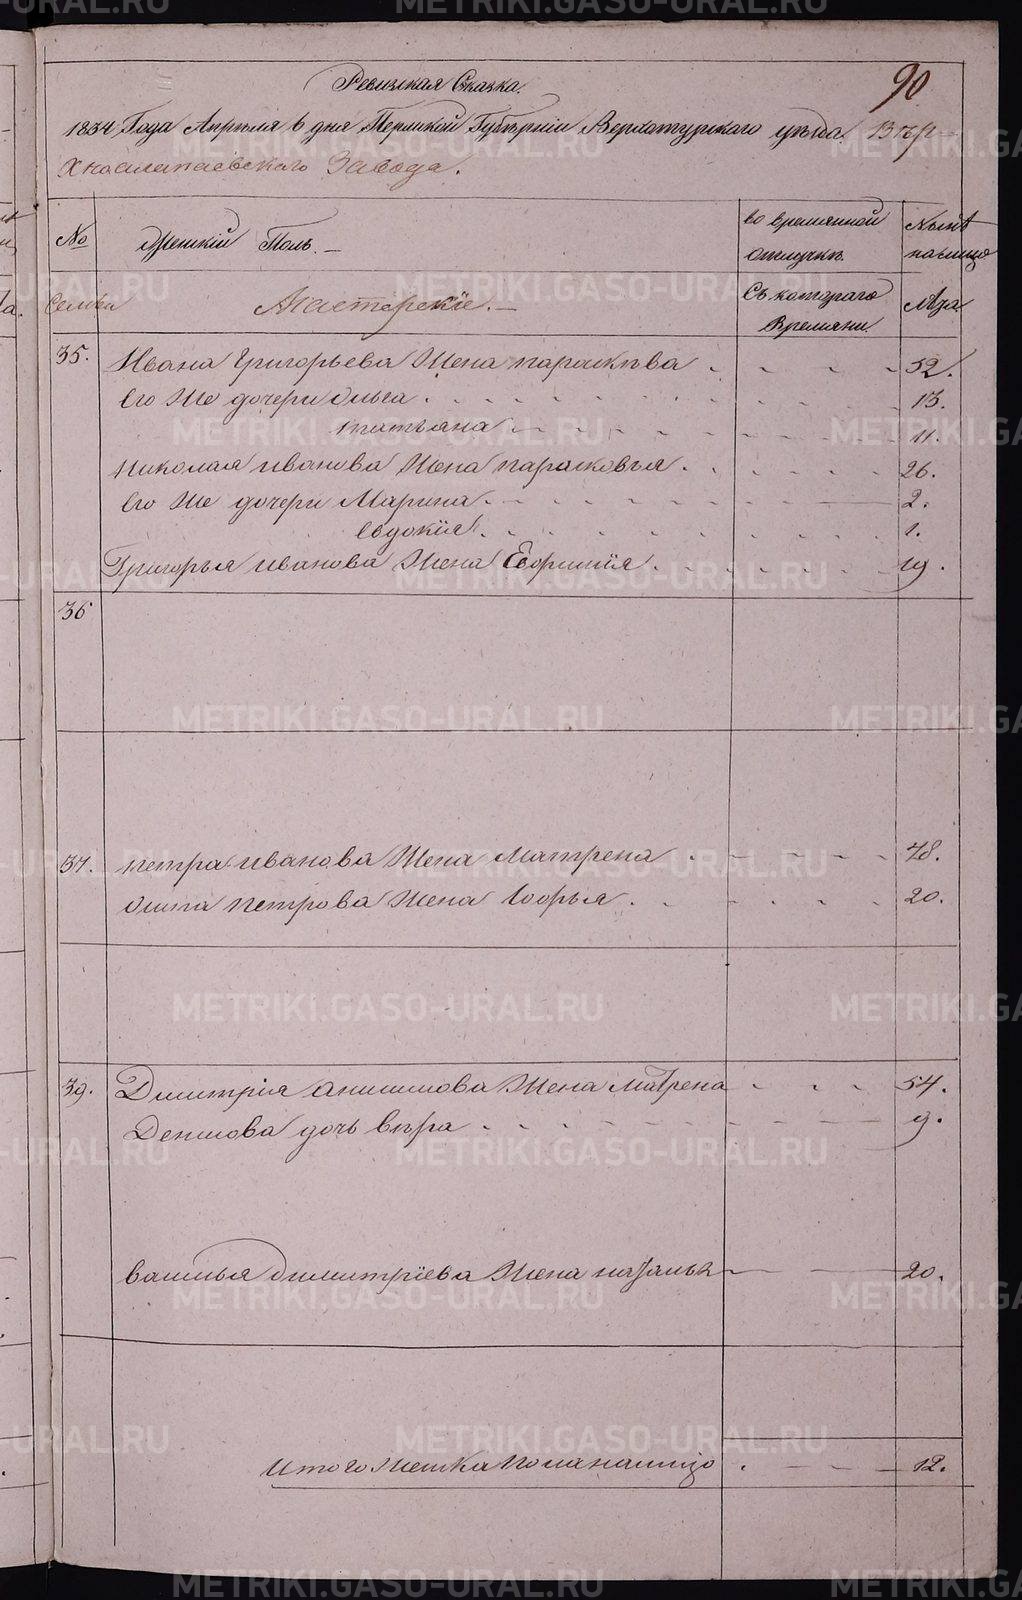 Ревизская Сказка.
90
1834 Года Апреля 6 дня Пермской Губернiи Верхотурского уезда Вер-
хнеалапаевского Завода.
№ Женскiй Полъ. во временной отлучке Ныне налицо
Семьи Мастерскiе. Съ котораго Времяни Лета
35. Ивана Григорьева Жена парасковя 52.
Его Же дочери Ольга 13.
татьяна 11.
Николая иванова Жена парасковья 26.
Его Же дочери Марина 2.
Евдокiя 1.
Григорья иванова Жена Ефимiя 19.
36
37. петра иванова Жена Матрена 48.
Осипа петрова Жена Софья 20.
39. Димитрiя анисимова Жена Матрена 54.
Денисова дочь вера 9.
василья димитрiева Жена наталья 20.
итого женска пола налицо 12.
METRIKI.GASO-URAL.RU